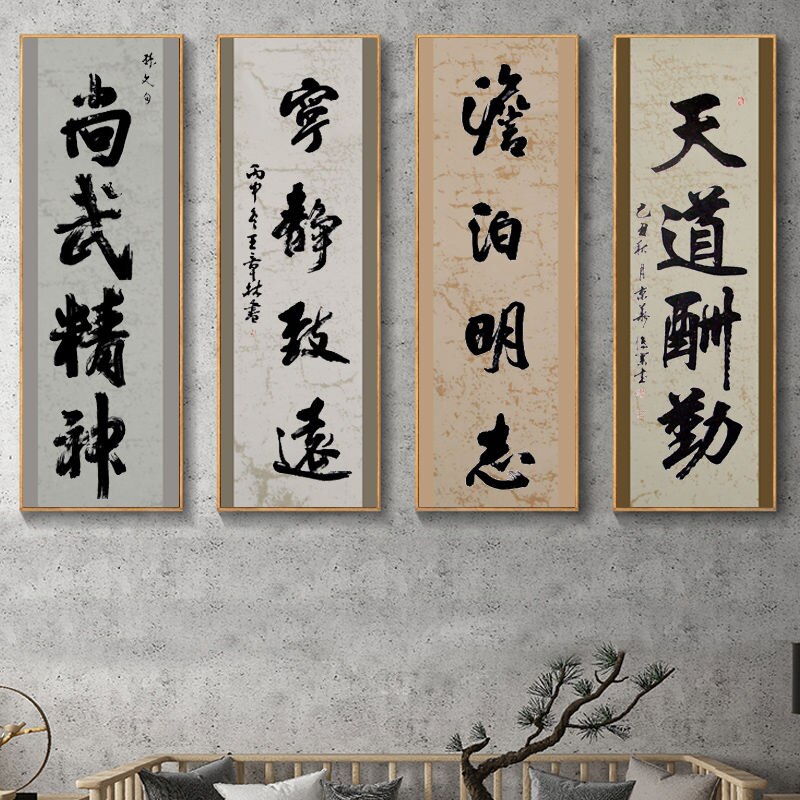 天道酬勤
己丑秋月京華
澹泊明志
寧静致遠
丙申冬王章林書
尚武精神
孫文句